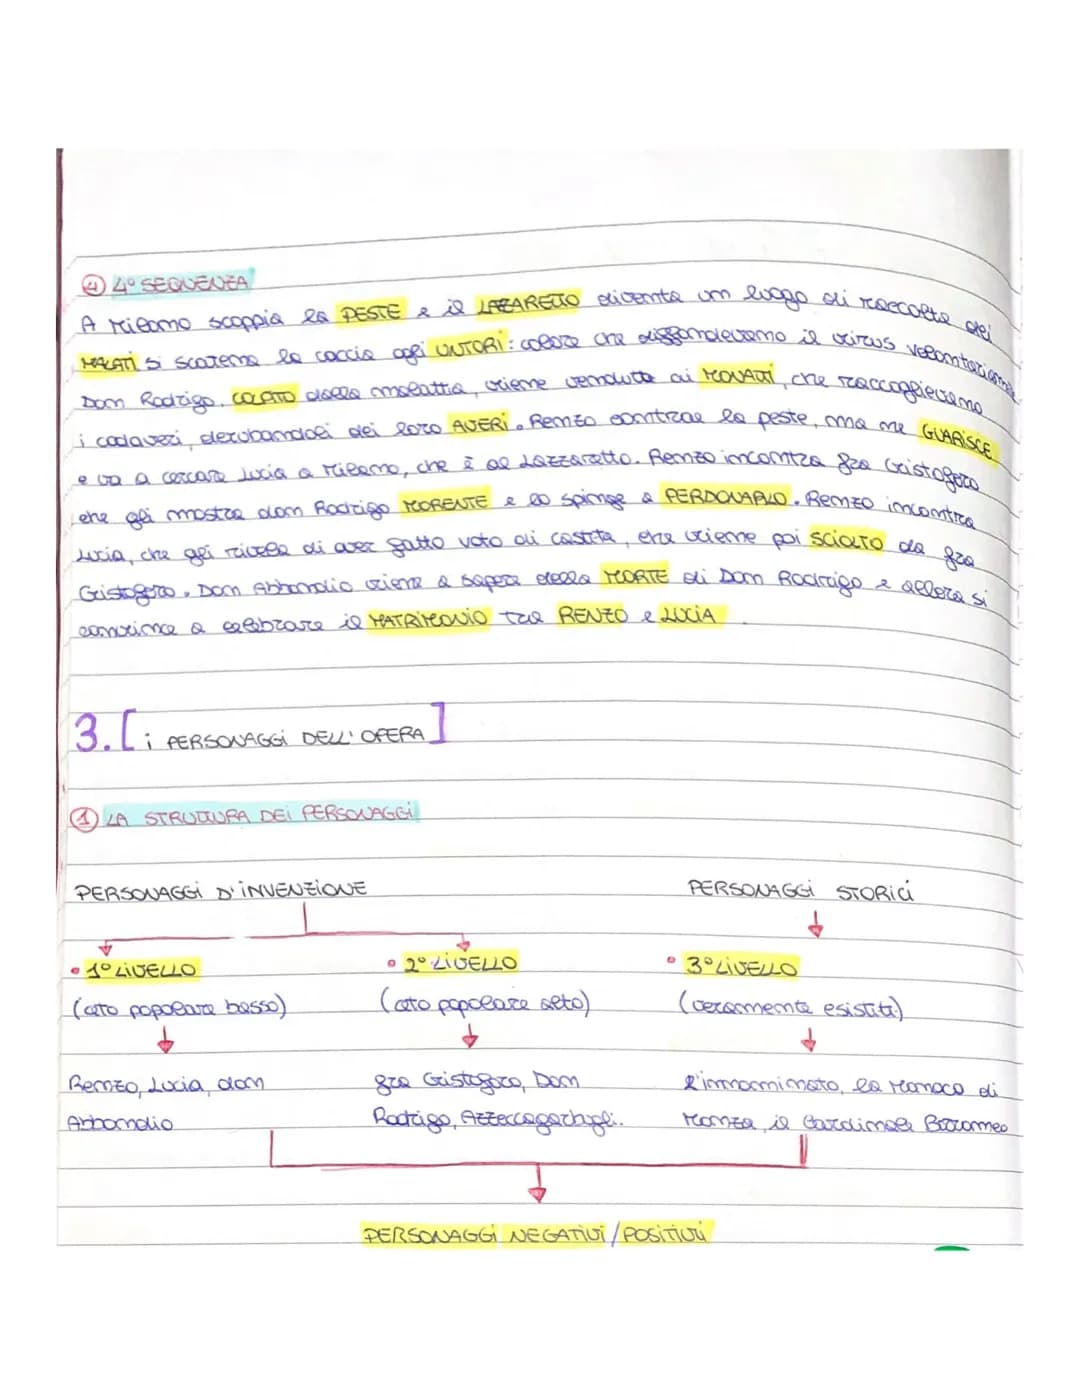 ④ 4° SEQUENZA
A Milano scoppia la PESTE e il LAZZARETTO diventa un luogo di raccolta dei
MALATI si scatena la caccia agli UNTORI: coloro che diffondevano il virus volontariamente
Don Rodrigo, COLPITO dalla malattia, viene venduto ai MONATTI, che raccoglievano
i cadaveri, derubandoli dei loro AVERI. Renzo contrae la peste, ma ne GUARISCE
e va a cercare Lucia a Milano, che è al Lazzaretto. Renzo incontra fra Cristoforo
che gli mostra don Rodrigo MORENTE e lo spinge a PERDONARLO. Renzo incontra
Lucia, che gli rivela di aver fatto voto di castità, che viene poi SCIOLTO da fra
Cristoforo. Don Abbondio viene a sapere della MORTE di Don Rodrigo e allora si
convince a celebrare il MATRIMONIO tra RENZO e LUCIA
3. [i PERSONAGGI DELL'OPERA]
① LA STRUTTURA DEI PERSONAGGI
PERSONAGGI D'INVENZIONE PERSONAGGI STORICI
• 1° LIVELLO • 2° LIVELLO • 3° LIVELLO
(ceto popolare basso) (ceto popolare alto) (veramente esistiti)
Renzo, Lucia, don fra Cristoforo, Don l'innominato, la Monaca di
Abbondio Rodrigo, Azzeccagarbugli. Monza, il Cardinale Borromeo
PERSONAGGI NEGATIVI / POSITIVI